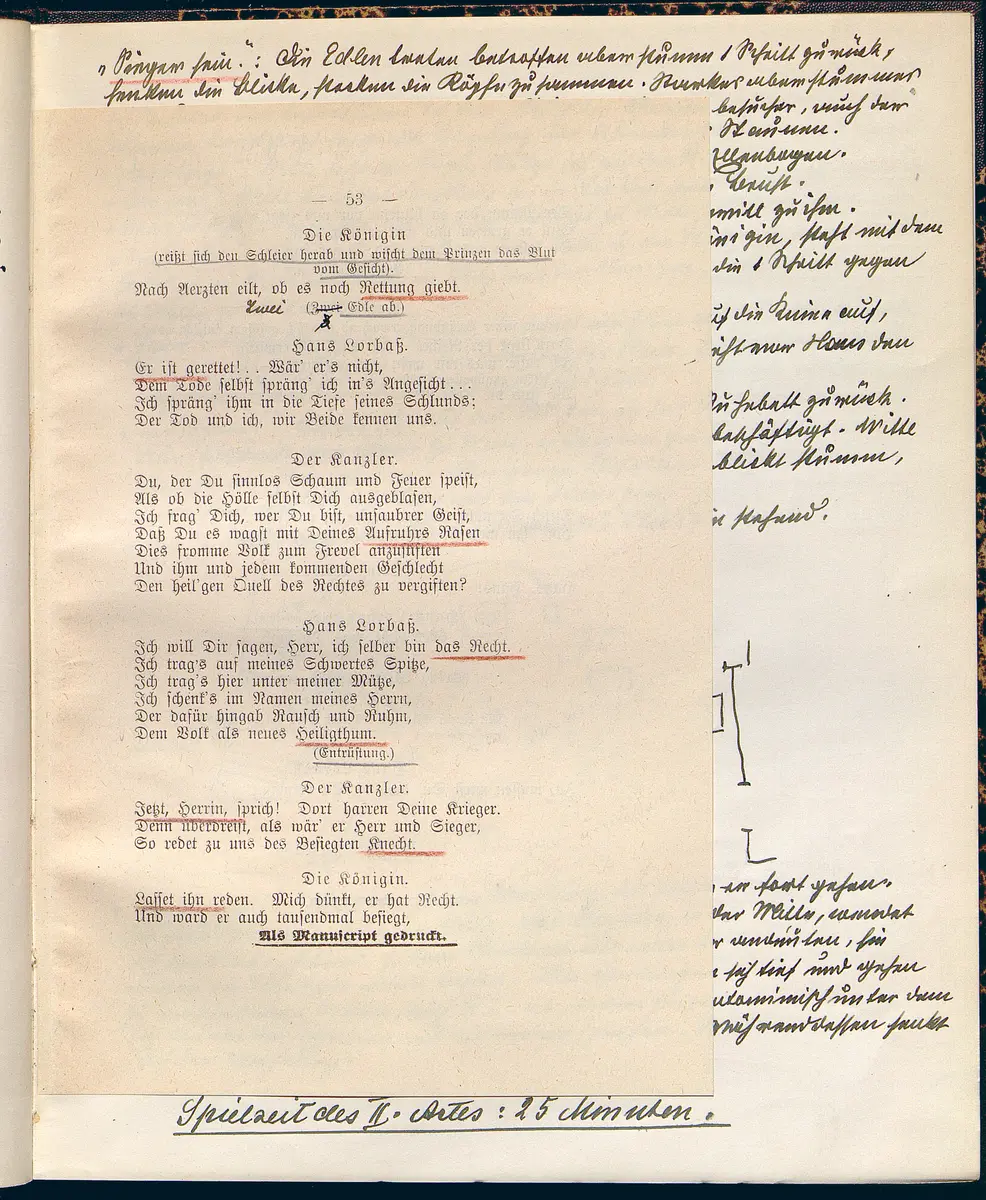 „Sieger sein.": Die Edlen treten betroffen aber stumm 1 Schritt zurück,
senken die Blicke, stecken die Köpfe zusammen. Starkes aber stummes
besucher, auch der
Staunen.
Ellenbogen.
Brust.
will zu ihm.
Königin, steht mit dem
die 1 Schritt gegen
auf die Kniee auf,
vor Hans den
Ruhebett zurück.
beschäftigt. Mitte
blickt stumm,
stehend.
— 53 —
Die Königin
(reißt sich den Schleier herab und wischt dem Prinzen das Blut
vom Gesicht).
Nach Aerzten eilt, ob es noch Rettung giebt.
Zwei (Zwei Edle ab.)
Hans Lorbaß.
Er ist gerettet! . . Wär' er's nicht,
Dem Tode selbst spräng' ich in's Angesicht . . .
Ich spräng' ihm in die Tiefe seines Schlunds;
Der Tod und ich, wir Beide kennen uns.
Der Kanzler.
Du, der Du sinnlos Schaum und Feuer speist,
Als ob die Hölle selbst Dich ausgeblasen,
Ich frag' Dich, wer Du bist, unsaubrer Geist,
Daß Du es wagst mit Deines Aufruhrs Rasen
Dies fromme Volk zum Frevel anzustiften
Und ihm und jedem kommenden Geschlecht
Den heil'gen Quell des Rechtes zu vergiften?
Hans Lorbaß.
Ich will Dir sagen, Herr, ich selber bin das Recht.
Ich trag's auf meines Schwertes Spitze,
Ich trag's hier unter meiner Mütze,
Ich schenk's im Namen meines Herrn,
Der dafür hingab Rausch und Ruhm,
Dem Volk als neues Heiligthum.
(Entrüstung.)
Der Kanzler.
Jetzt, Herrin, sprich! Dort harren Deine Krieger.
Denn überdreist, als wär' er Herr und Sieger,
So redet zu uns des Besiegten Knecht.
Die Königin.
Lasset ihn reden. Mich dünkt, er hat Recht.
Und ward er auch tausendmal besiegt,
Als Manuscript gedruckt.
fort gehen.
der Mitte, wendet
andeuten, sie
sich tief und gehen
pantomimisch unter dem
Währenddessen senkt
Spielzeit des II. Actes: 25 Minuten.